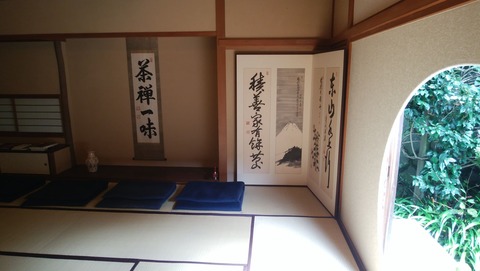 茶禅一味
積善家有餘慶
東山水上行